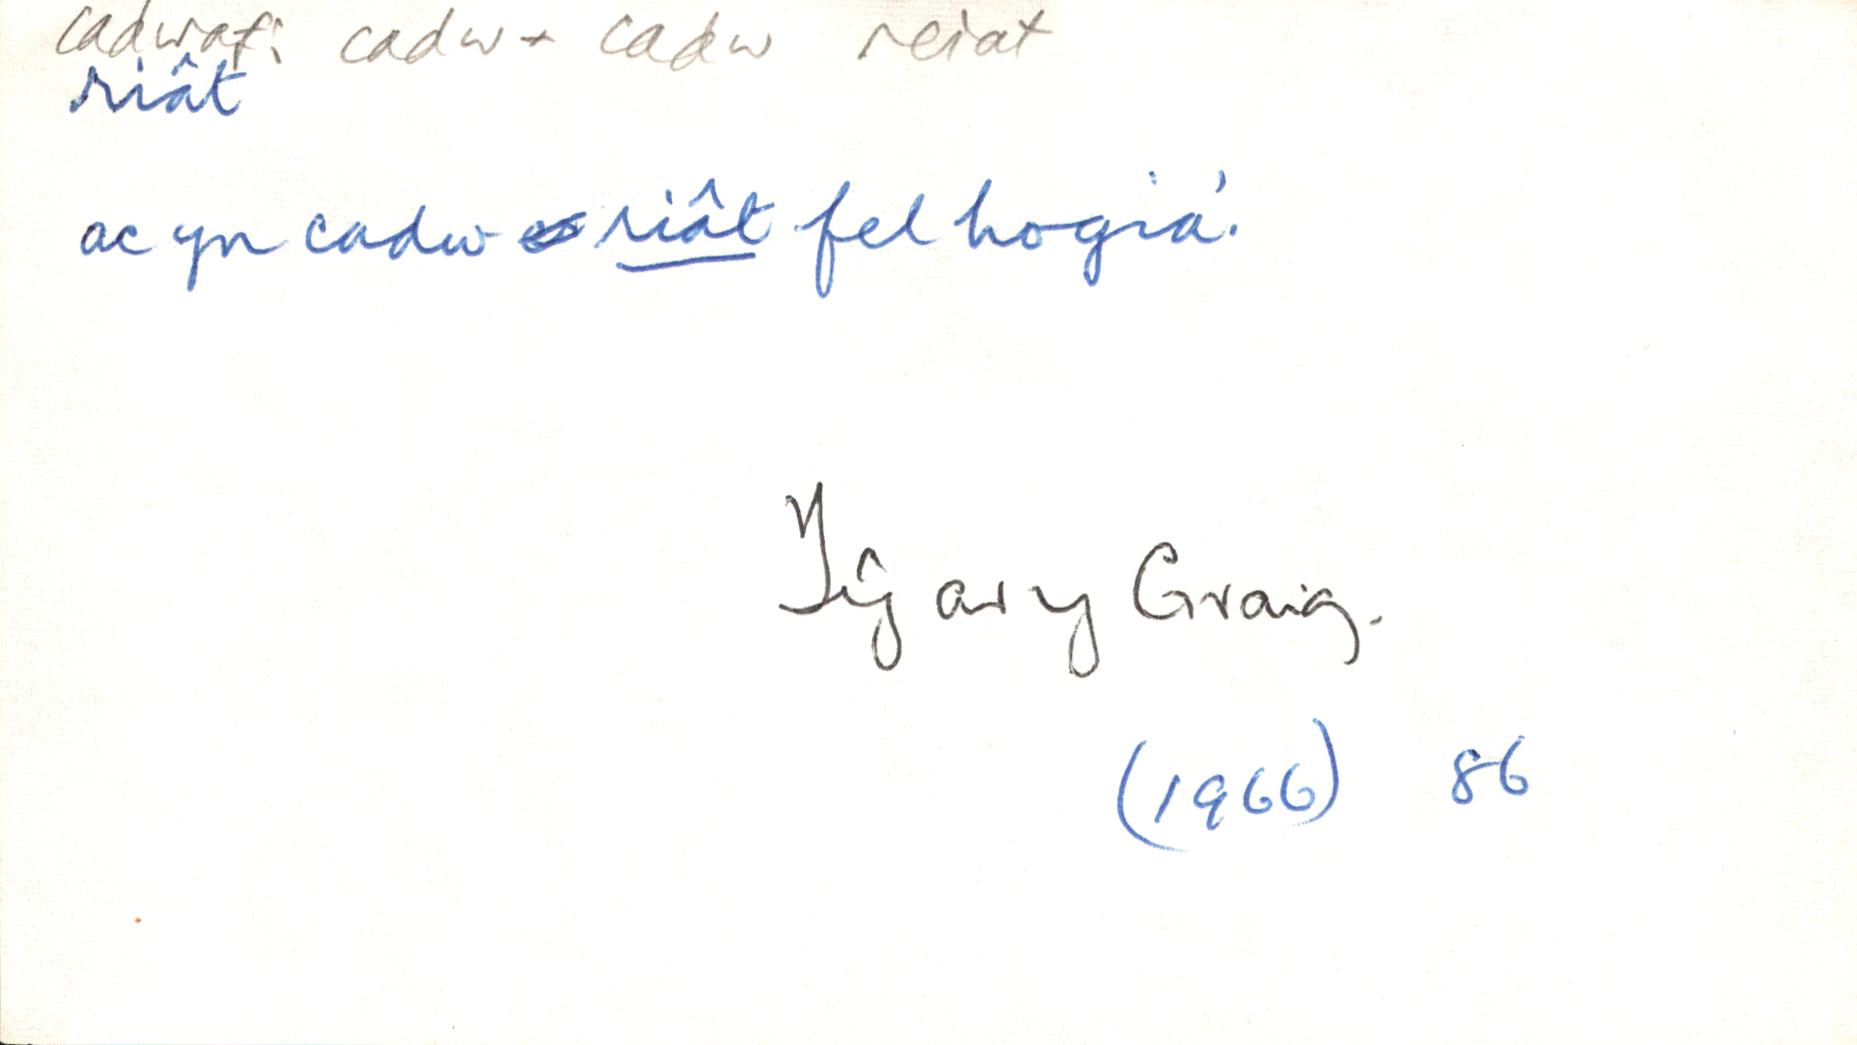 cadwaf: cadw + cadw reiat
riât
ac yn cadw riât fel hogia'.
Tŷ ar y Graig.
(1966) 86